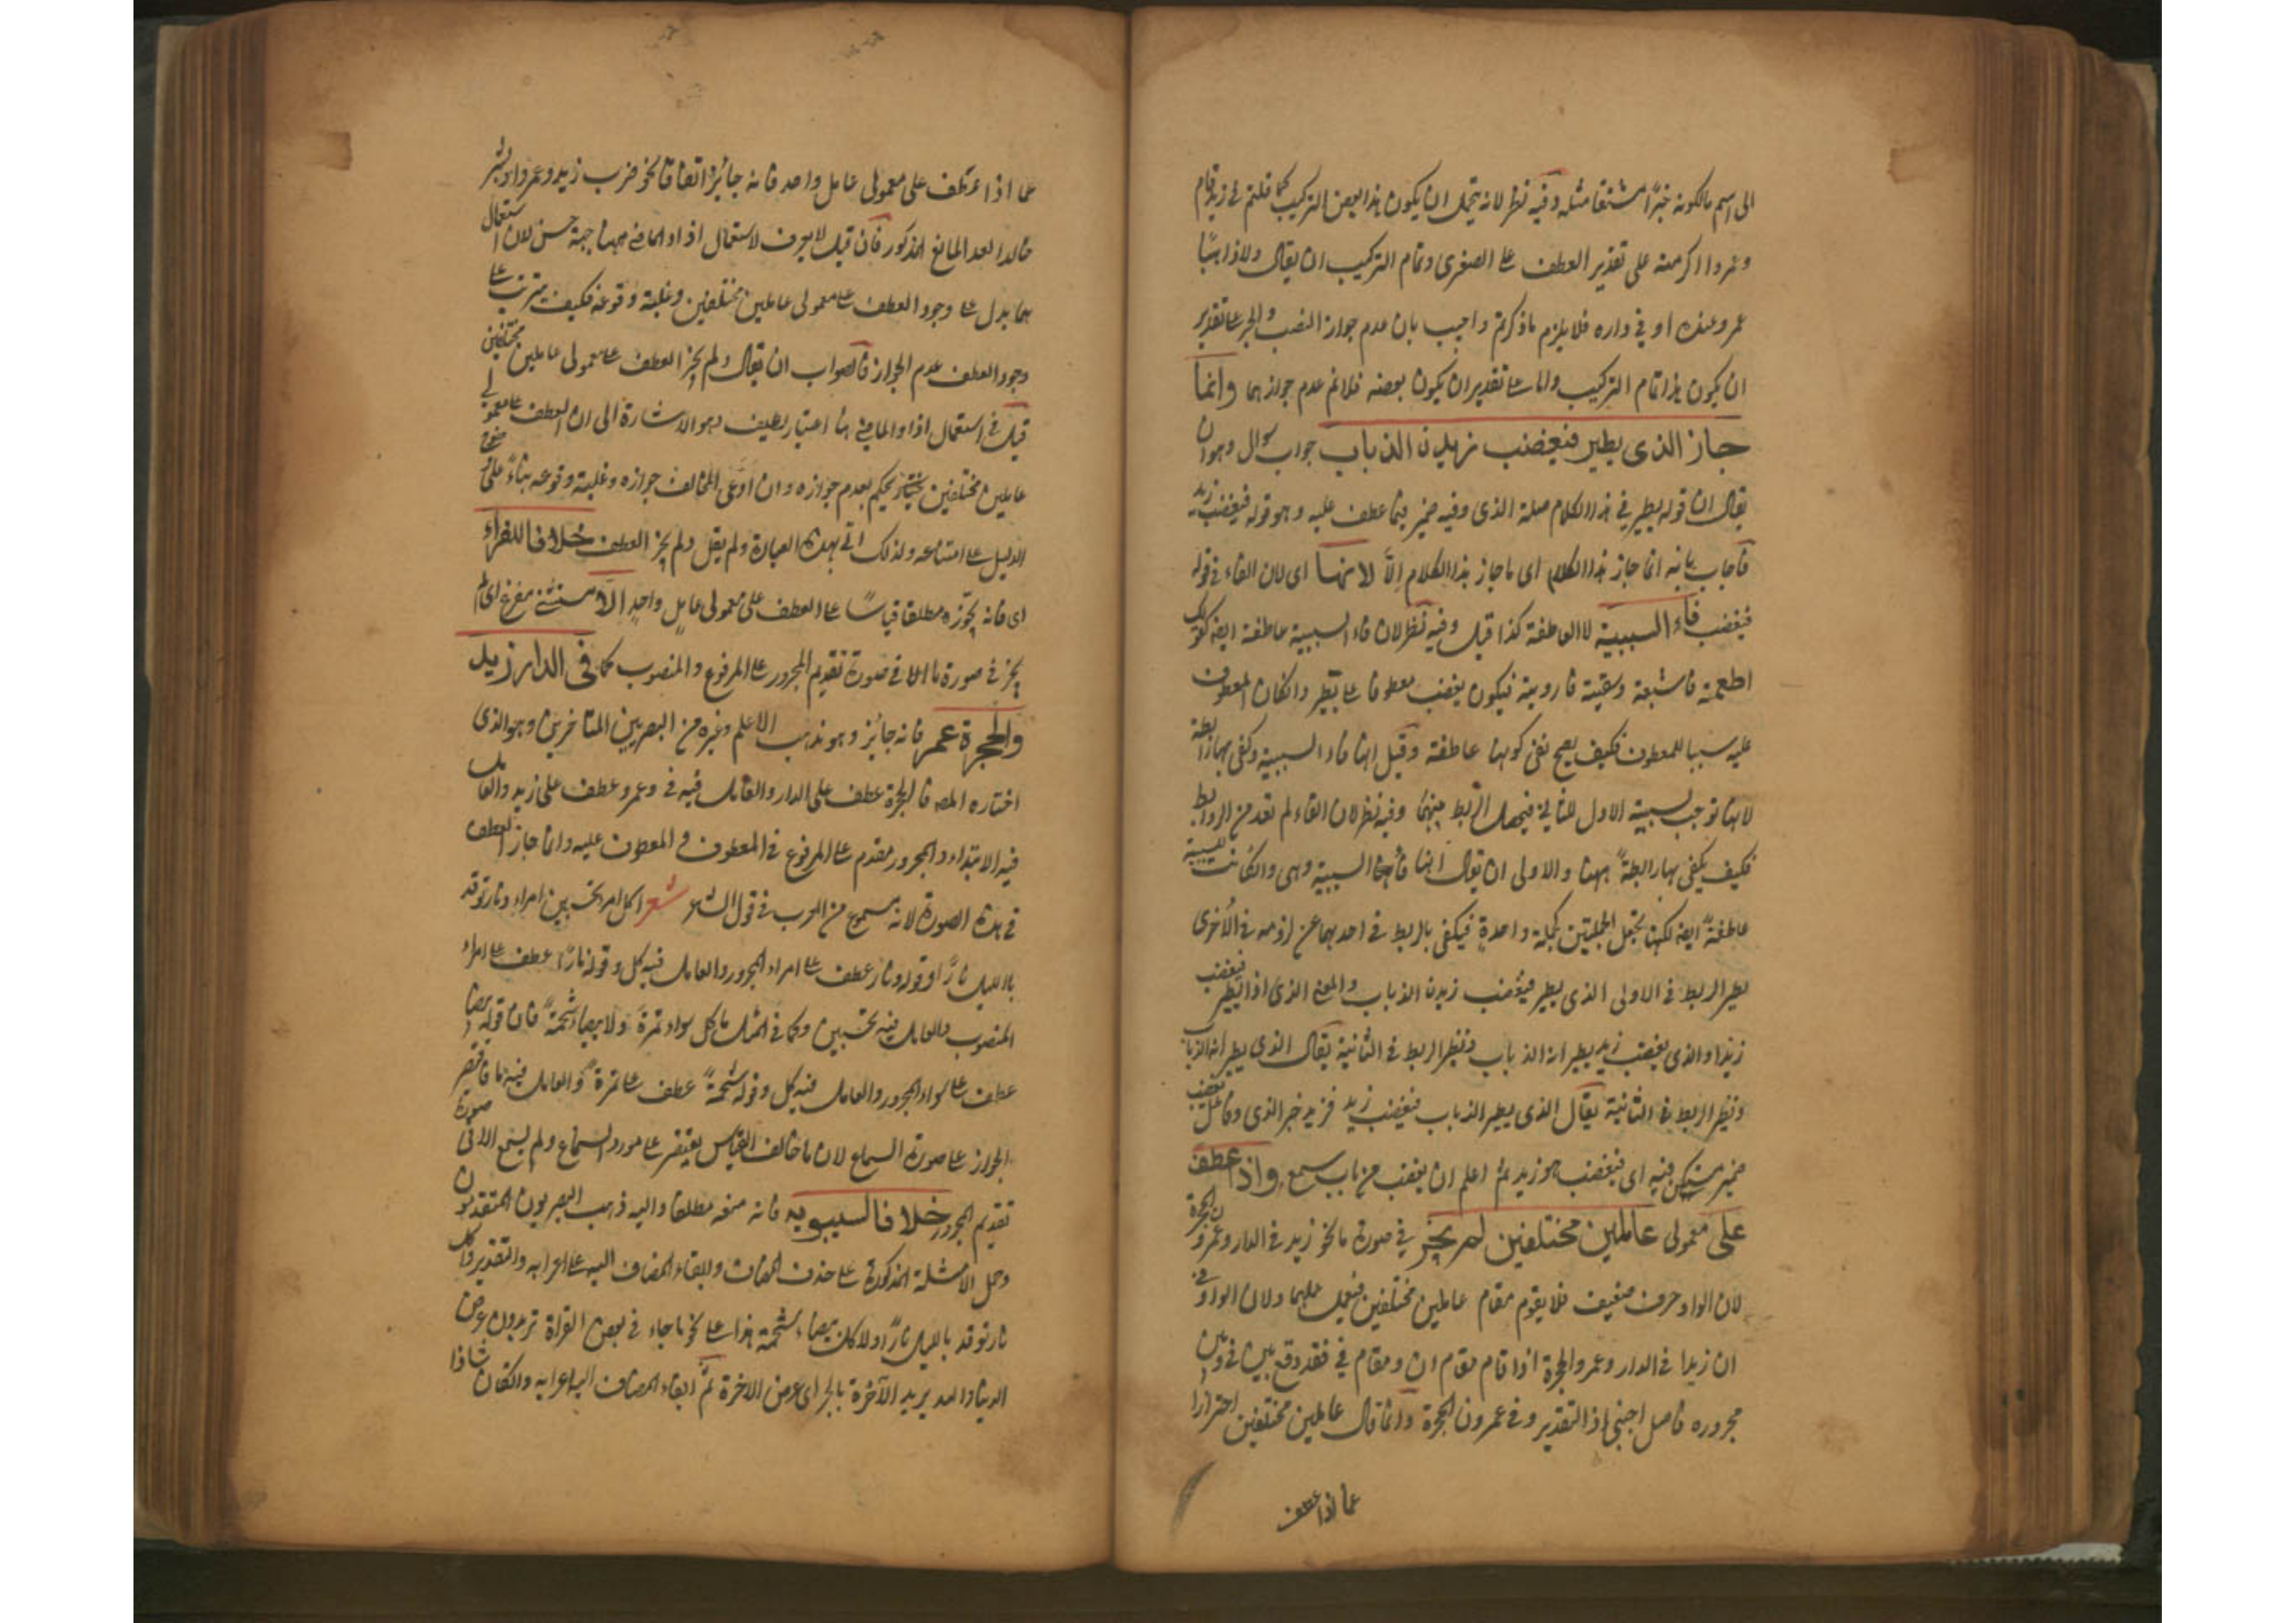 الى اسم ما لكونه خبرًا مشتقا مثله وفيه نظر لانه يحتمل ان يكون هذا بعض التركيب كما قلتم في زيد قام
وعمروا اكرمته على تقدير العطف على الصغرى وتمام التركيب ان يقال ولا ذاهبًا
عمرو عنده او في داره فلا يلزم ما ذكرتم واجيب بان عدم جواز النصب والجر على تقدير
ان يكون هذا تمام التركيب واما على تقدير ان يكون بعضه فلا نم عدم جوازهما وانما
جاز الذى يطير فيغضب زيد ن الذباب جواب سوال وهو ان
يقال ان قوله يطير في هذا الكلام صلة الذى وفيه ضمير فيما عطف عليه وهو قوله فيغضب زيد
فاجاب بانه انما جاز هذا الكلام اى ما جاز هذا الكلام الّا لانها اى لان الفاء في قوله
فيغضب فاء السببية لا العاطفة كذا قيل وفيه نظر لان فاء السببية عاطفة ايضا كقولك
اطعمته فاشبعته وسقيته فارويته فيكون يغضب معطوفا على يطير وانكان المعطوف
عليه سببا للمعطوف فكيف يصح نفى كونها عاطفة وقيل انها فاء السببية وكفى بها رابطة
لانها توجب سببية الاول للثاني فيحصل الربط بينهما وفيه نظر لان الفاء لم تعد من الروابط
فكيف يكفى بها رابطةً ههنا والاولى ان يقال انها فاء السببية وهى وانكانت للسببية
عاطفةً ايضا لكنها تجعل الجملتين كجملة واحدةٍ فيكفى بالربط في احديهما عن لزومه في الاُخرى
نظير الربط في الاولى الذى يطير فيغضب زيد ن الذباب والمعنى الذى اذا يطير فيغضب
زيد او الذى يغضب زيد بطيرانه الذباب ونظير الربط في الثانية يقال الذى بطيرانه الذباب
ونظير الربط في الثانية يقال الذى يطير الذباب فيغضب زيد فزيد خبر الذى وفاعل يغضب
ضمير مستكن فيه اى فيغضب هو زيد ثم اعلم ان يغضب من باب سمع واذا عطف
على معمولى عاملين مختلفين لم يجز في صورة ما نحو زيد في الدار وعمرو ن الحجرة
لان الواو حرف ضعيف فلا يقوم مقام عاملين مختلفين فيعمل عملهما ولان الواو في
ان زيدا في الدار وعمروا لحجرة اذا قام مقام ان ومقام في فقد وقع بين في وبين
مجروره فاصل اجنبى اذ التقدير وفى عمرون الحجرة وانما قال عاملين مختلفين احترازا
عما اذا عطف
عما اذا عطف على معمولى عامل واحد فانه جائز اتفاقا نحو ضرب زيد وعمروا وبشر
خالدا لعد المانع المذكور فان قيل لا يعرف لاستعمال اذا والماضي ههنا جهة حسن لان استعمال
هما يدل على وجود العطف على معمولى عاملين مختلفين وغلبة وقوعه فكيف يترتب على
وجود العطف عدم الجواز فالصواب ان يقال ولم يجز العطف على معمولى عاملين مختلفين
قيل في استعمال اذا والماضي هنا اعتبار لطيف وهو الاشارة الى ان العطف على معمولى
عاملين مختلفين يحكم بعدم جوازه وان ادّعى المخالف جوازه وغلبة وقوعه بناءً على وضوح
الدليل على امتناعه ولذلك اتى بهذه العبارة ولم يقل ولم يجز العطف خلافا للفراء
اى فانه يجوّزه مطلقا قياسًا على العطف على معمولى عاملٍ واحدٍ الّا مستثنى مفرغ اى لم
يجز في صورة ما الا في صورة تقديم المجرور على المرفوع والمنصوب كما في الدار زيد
والحجرة عمر فانه جائز وهو مذهب الاعلم وغيره من البصريين المتاخرين وهو الذى
اختاره المصـ فالحجرة عطف على الدار والعامل فيه في وعمرو عطف على زيد والعامل
فيه الابتداء والمجرور مقدم على المرفوع في المعطوف والمعطوف عليه وانما جاز العطف
في هذه الصورة لانه مسموع من العرب في قول الشاعر شعر اكل امرء تحسبين امراء ونار توقد
بالليل نارًا وقوله ونار عطف على امراء المجرور والعامل فيه كل وقوله نارًا عطف على امراء
المنصوب والعامل فيه تحسبين وكما في المثل ما كل سواد تمرةً ولا بيضاء شحمةً فان قوله بيضاء
عطف على سواد المجرور والعامل فيه كل وقوله شحمةً عطف على تمرةً والعامل فيه ما فاقتصر
الجواز على صورة السماع لان ما خالف القياس يقتصر على مورد السماع ولم يسمع الا في صورة
تقديم المجرور خلافا لسيبويه فانه منعه مطلقا واليه ذهب البصريون المتقدمون
وحمل الامثلة المذكورة على حذف المضاف وابقاء المضاف اليه على اعرابه والتقدير وكل
نار توقد بالليل نارًا ولا كل بيضاء شحمة هذا على نحو ما جاء في بعض القراة تريدون عرض
الدنيا والله يريد الآخرة بالجر اى عرض الاخرة ثمّ ابقاء المضاف اليه على اعرابه وانكان شاذا